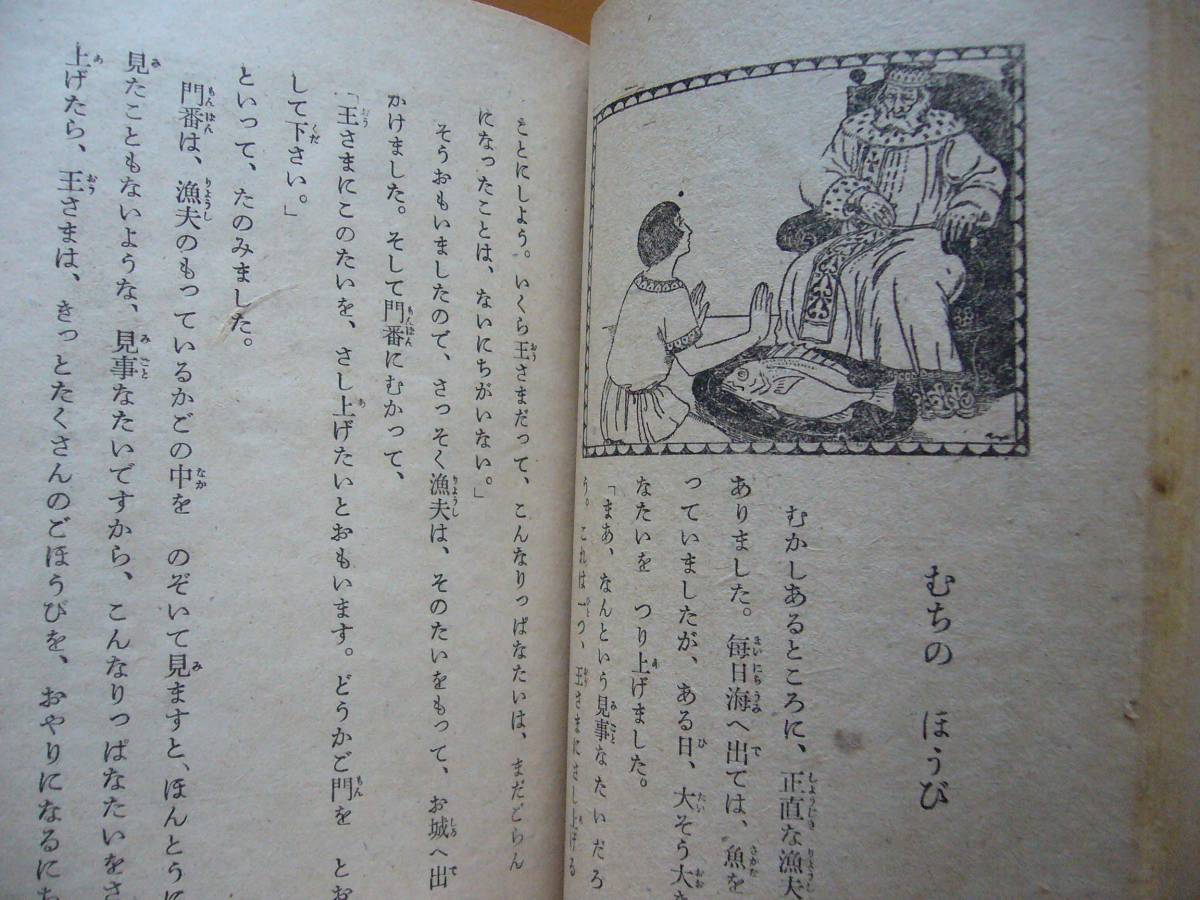 むちの　ほうび
むかしあるところに、正直な漁夫
ありました。毎日海へ出ては、魚を
っていましたが、ある日、大そう大
なたいを　つり上げました。
「まあ、なんという見事なたいだろ
う。これは一つ、王さまにさし上げる
ことにしよう。いくら王さまだって、こんなりっぱなたいは、まだごらん
になったことは、ないにちがいない。」
そうおもいましたので、さっそく漁夫は、そのたいをもって、お城へ出
かけました。そして門番にむかって、
「王さまにこのたいを、さし上げたいとおもいます。どうかご門を　とお
して下さい。」
といって、たのみました。
門番は、漁夫のもっているかごの中を　のぞいて見ますと、ほんとうに
見たこともないような、見事なたいですから、こんなりっぱなたいをさ
上げたら、王さまは、きっとたくさんのごほうびを、おやりになるにち